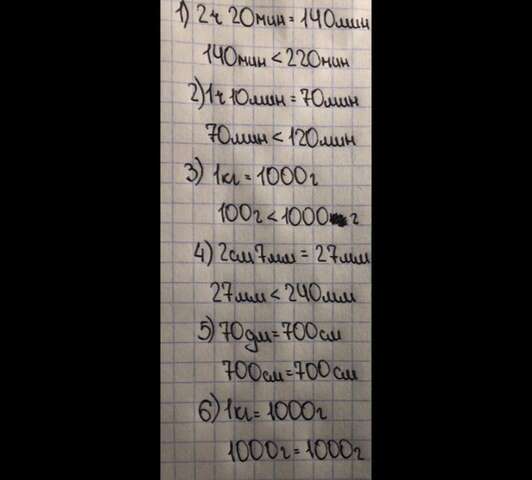 1) 2ч 20мин = 140мин
140мин < 220мин
2) 1ч 10мин = 70мин
70мин < 120мин
3) 1кг = 1000г
100г < 1000 г
4) 2см 7мм = 27мм
27мм < 240мм
5) 70дм = 700см
700см = 700см
6) 1кг = 1000г
1000г = 1000г